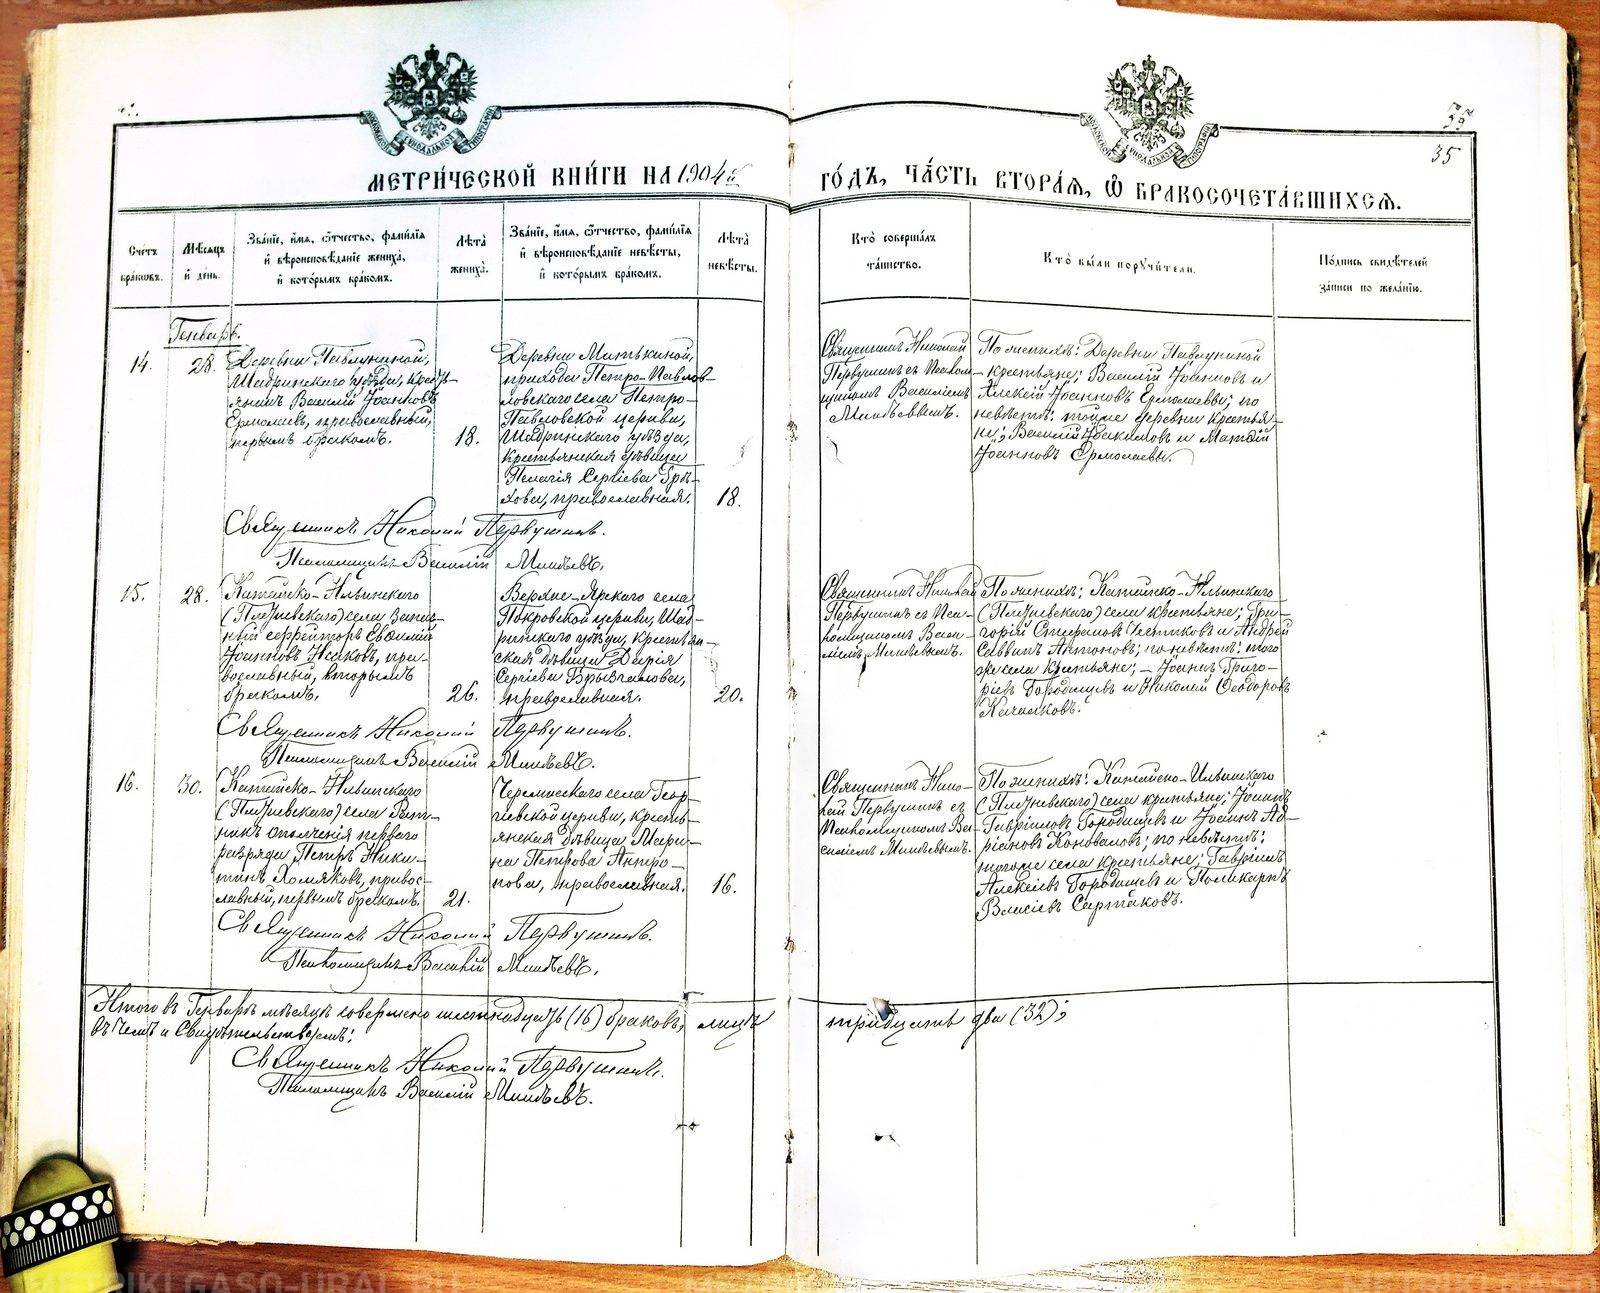 МЕТРИ́ЧЕСКОЙ КНИ́ГИ НА 1904й ГО́ДЪ, ЧА́СТЬ ВТОРА́Я, Ѡ БРАКОСОЧЕТА́ВШИХСЯ.
35
Сче́тъ бра́ковъ.
Мѣ́сяцъ и҆ де́нь.
Зва́нїе, и҆́мя, ѻ҆́тчество, фами́лїя и҆ вѣроисповѣ́данїе жениха̀, и҆ кото́рымъ бра́комъ.
Лѣ́та жениха̀.
Зва́нїе, и҆́мя, ѻ҆́тчество, фами́лїя и҆ вѣроисповѣ́данїе невѣ́сты, и҆ кото́рымъ бра́комъ.
Лѣ́та невѣ́сты.
Кто̀ соверша́лъ та́инство.
Кто̀ бы́ли поручи́тели.
По́дпись свидѣ́телей за́писи по жела́нїю.
Генварь.
14.
28.
Деревни Павлуниной,
Шадринскаго уѣзда, кресть-
янинъ Василій Іоанновъ
Ермолаевъ, православный,
первымъ бракомъ.
18.
Деревни Матькиной,
прихода Петро-Павлов-
ловскаго села Петро-
Павловской церкви,
Шадринскаго уѣзда,
крестьянская дѣвица
Пелагія Сергіева
хова, православная.
18.
Священникъ Николай
Первушинъ съ Псалом-
щикомъ Василіемъ
По женихѣ: Деревни Павлуниной
крестьяне; Василій Іоанновъ и
Алексій Іоанновъ Ермолаевы; по
невѣстѣ: тойже деревни крестья-
не; Василій Іоакимовъ и Матѳій
Іоанновъ Ермолаевы.
Священникъ Николай Первушинъ.
Псаломщикъ Василій
15.
28.
Катайско-Ильинскаго
села запас-
ный ефрейторъ Евѳимій
Іоанновъ Исаковъ, пра-
вославный, вторымъ
бракомъ.
26.
Верхне-Ярскаго села
Покровской церкви, Шад-
ринскаго уѣзда, крестьян-
ская дѣвица Дарія
Сергіева Брызгалова,
православная.
20.
Священникъ Николай
Первушинъ съ Пса-
ломщикомъ Васи-
ліемъ
По женихѣ: Катайско-Ильинскаго
села крестьяне; Гри-
горій Стефановъ и Андрей
Саввинъ Антоновъ; по невѣстѣ: того
же села крестьяне; - Іоаннъ Григо-
рьевъ Городищевъ и Николай Ѳеодоровъ
Качалковъ.
Священникъ Николай Первушинъ.
Псаломщикъ Василій
16.
30.
Катайско-Ильинскаго
села Рат-
никъ ополченія перваго
разряда Петръ Ники-
тинъ Хомяковъ, правос-
лавный, первымъ бракомъ.
21.
села Геор-
гіевской церкви, кресть-
янская дѣвица Мари-
на Петрова Антро-
пова, православная.
16.
Священникъ Нико-
лай Первушинъ съ
Псаломщикомъ Ва-
силіемъ
По женихѣ: Катайско-Ильинскаго
села крестьяне; Іоаннъ
Гавріиловъ Городищевъ и Іоаннъ Ад-
ріановъ Коноваловъ; по невѣстѣ:
тогоже села крестьяне; Гавріилъ
Алексіевъ Городищевъ и Поликарпъ
Власіевъ Сартаковъ.
Священникъ Николай Первушинъ.
Псаломщикъ Василій
Итого въ Генварѣ мѣсяцѣ совершено шестнадцать (16) браковъ, лицъ тридцать два (32);
въ чемъ и свидѣтельствуемъ:
Священникъ Николай Первушинъ.
Псаломщикъ Василій
METRIKI.GASO-URAL.RU